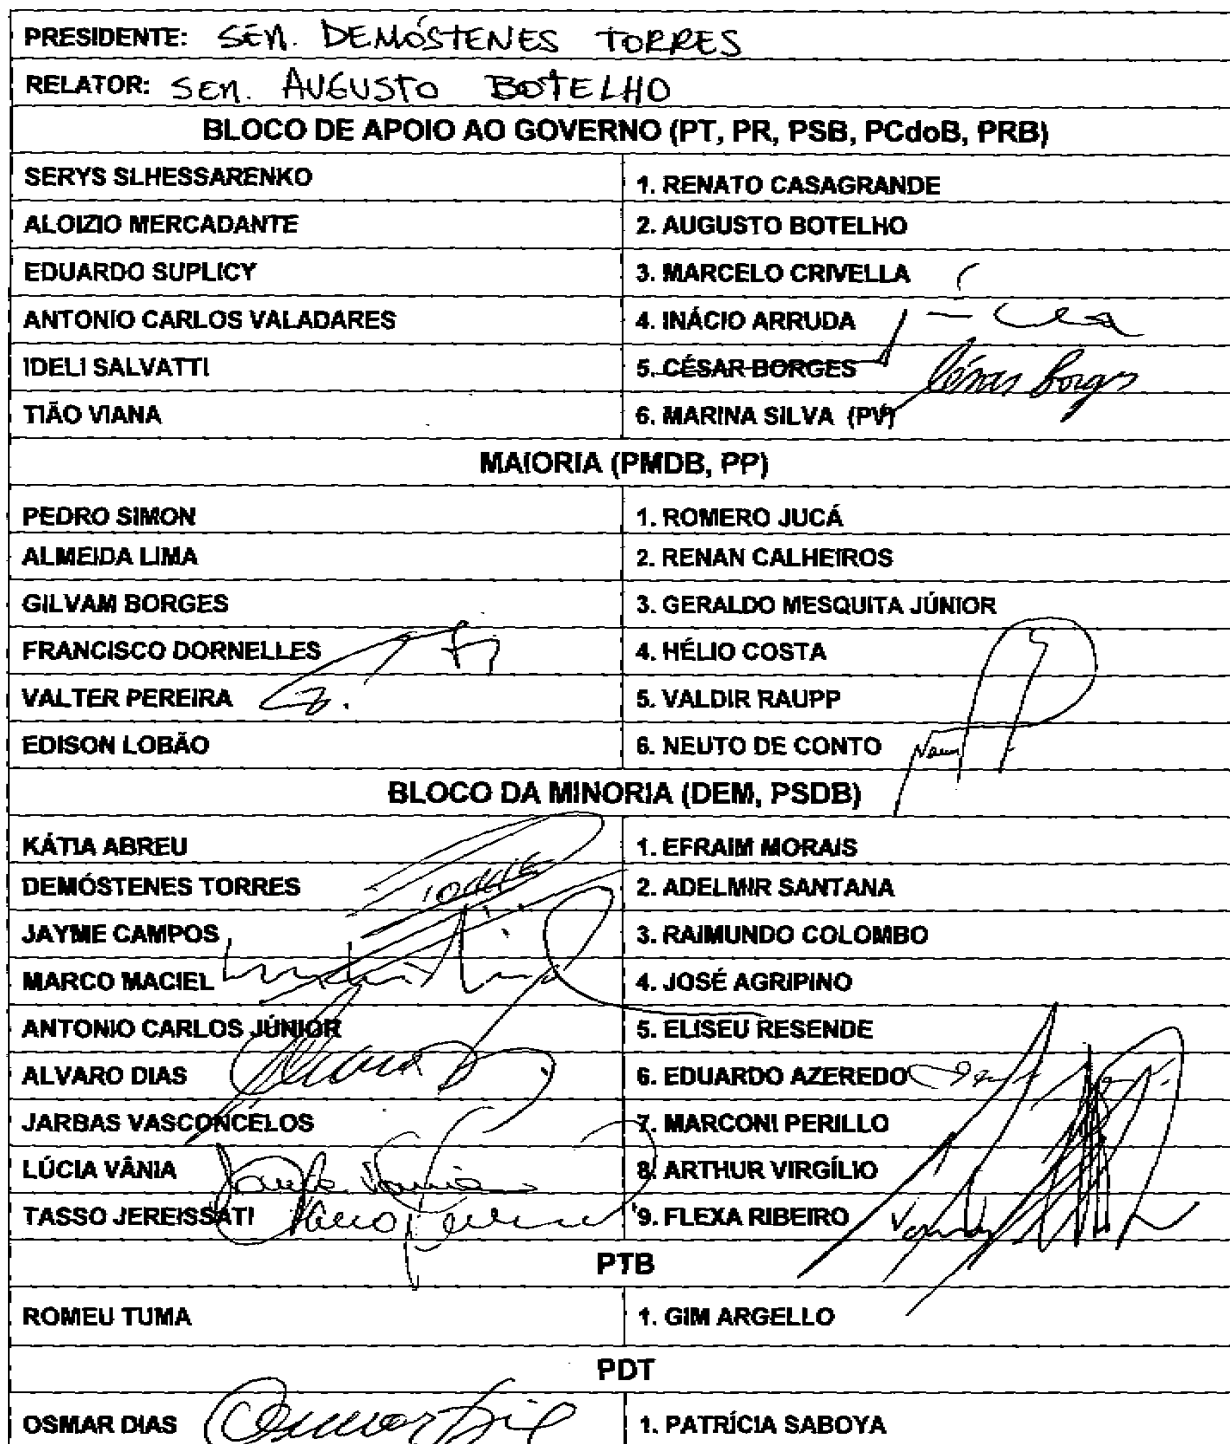 PRESIDENTE: SEN. DEMÓSTENES TORRES
RELATOR: SEN. AUGUSTO BOTELHO
BLOCO DE APOIO AO GOVERNO (PT, PR, PSB, PCdoB, PRB)
SERYS SLHESSARENKO 1. RENATO CASAGRANDE
ALOIZIO MERCADANTE 2. AUGUSTO BOTELHO
EDUARDO SUPLICY 3. MARCELO CRIVELLA
ANTONIO CARLOS VALADARES 4. INÁCIO ARRUDA
IDELI SALVATTI 5. CÉSAR BORGES César Borges
TIÃO VIANA 6. MARINA SILVA (PV)
MAIORIA (PMDB, PP)
PEDRO SIMON 1. ROMERO JUCÁ
ALMEIDA LIMA 2. RENAN CALHEIROS
GILVAM BORGES 3. GERALDO MESQUITA JÚNIOR
FRANCISCO DORNELLES 4. HÉLIO COSTA
VALTER PEREIRA 5. VALDIR RAUPP
EDISON LOBÃO 6. NEUTO DE CONTO
BLOCO DA MINORIA (DEM, PSDB)
KÁTIA ABREU 1. EFRAIM MORAIS
DEMÓSTENES TORRES 2. ADELMIR SANTANA
JAYME CAMPOS 3. RAIMUNDO COLOMBO
MARCO MACIEL 4. JOSÉ AGRIPINO
ANTONIO CARLOS JÚNIOR 5. ELISEU RESENDE
ALVARO DIAS 6. EDUARDO AZEREDO
JARBAS VASCONCELOS 7. MARCONI PERILLO
LÚCIA VÂNIA 8. ARTHUR VIRGÍLIO
TASSO JEREISSATI 9. FLEXA RIBEIRO
PTB
ROMEU TUMA 1. GIM ARGELLO
PDT
OSMAR DIAS Osmar Dias 1. PATRÍCIA SABOYA